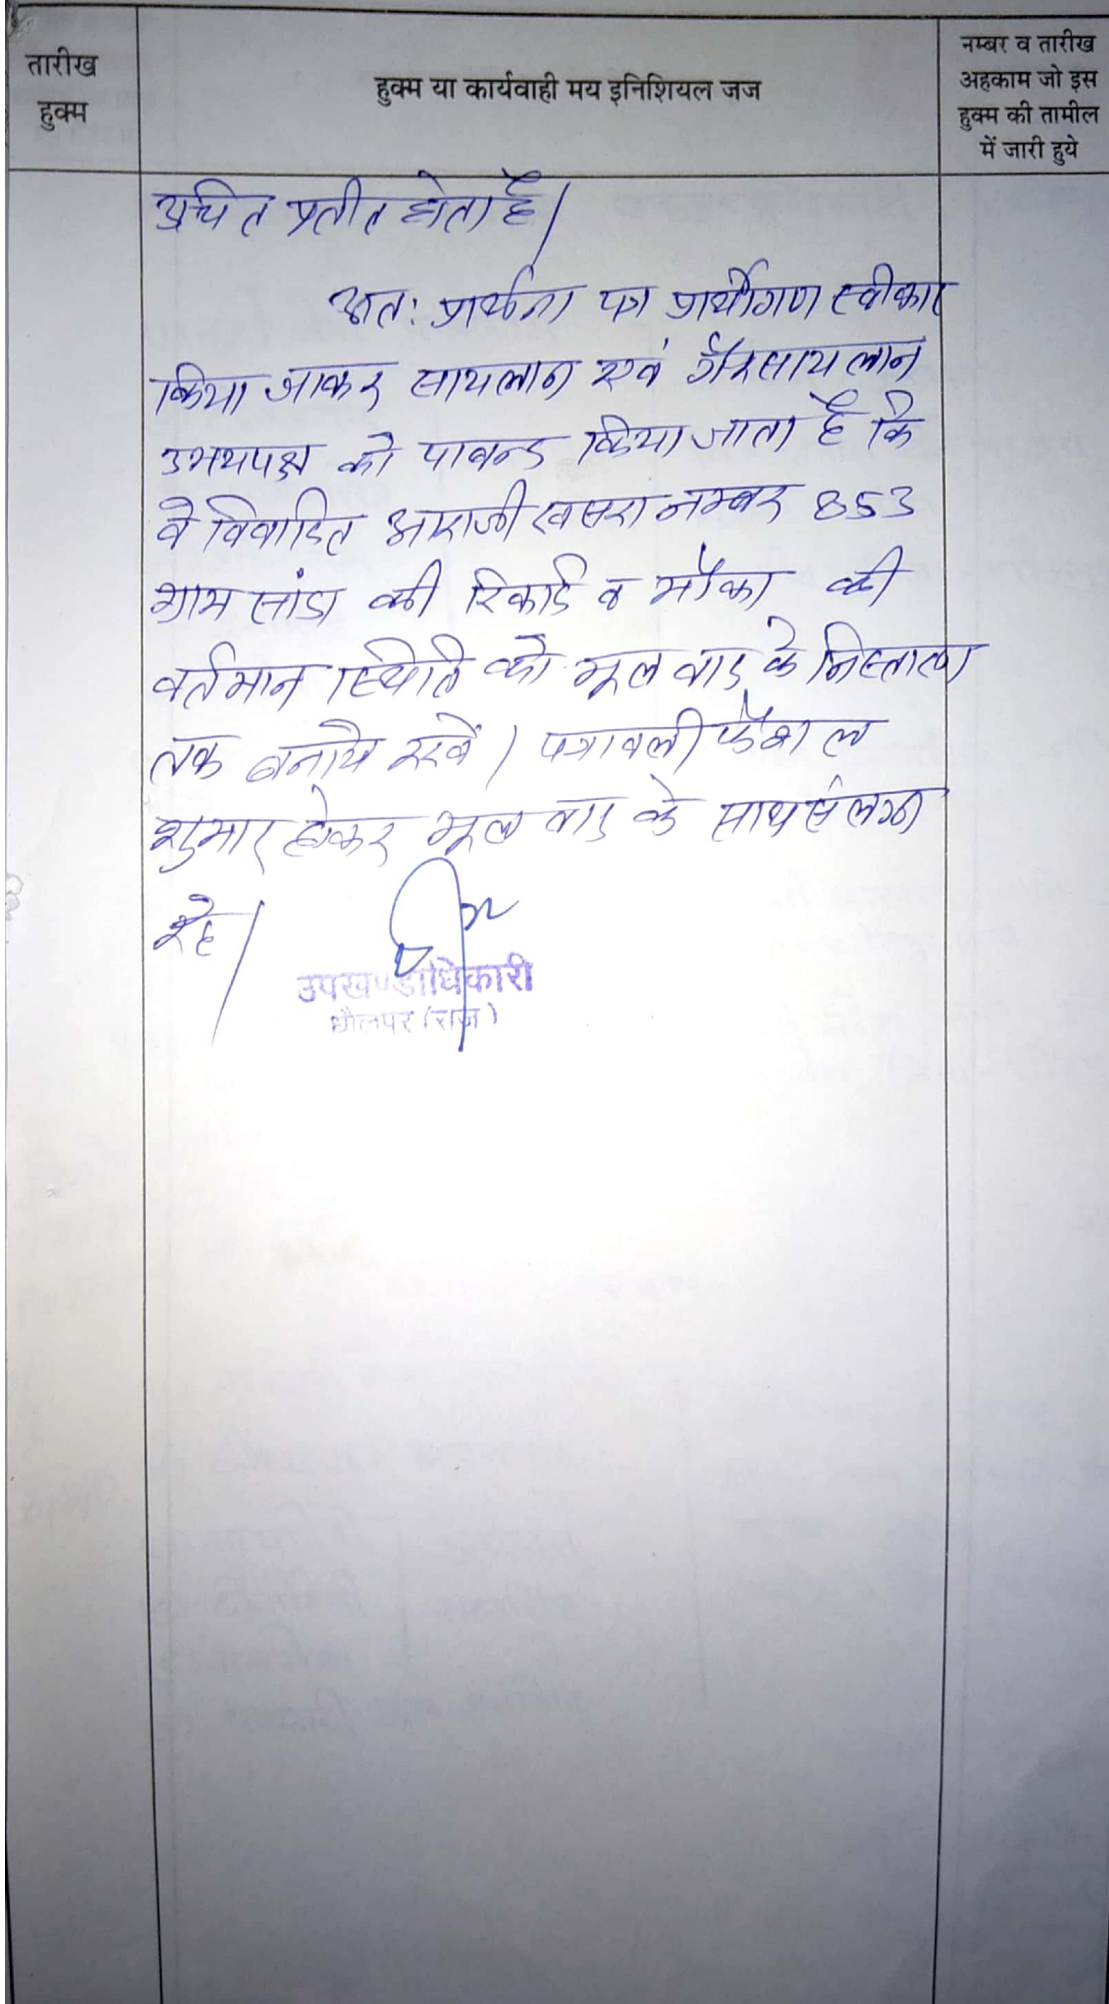 तारीख
हुक्म
हुक्म या कार्यवाही मय इनिशियल जज
नम्बर व तारीख
अहकाम जो इस
हुक्म की तामील
में जारी हुये
उचित प्रतीत होता है।
अतः प्रार्थना पत्र प्रार्थीगण स्वीकार
किया जाकर सायलान एवं गैरसायलान
उभयपक्ष को पाबन्द किया जाता है कि
वे विवादित आराजी खसरा नम्बर 853
ग्राम सांडा की रिकार्ड व मौका की
वर्तमान स्थिति को मूल वाद के निस्तारण
तक बनाये रखें। पत्रावली फैशल
शुमार होकर मूल वाद के साथ संलग्न
रहे।
उपखण्डाधिकारी
धौलपुर (राज)